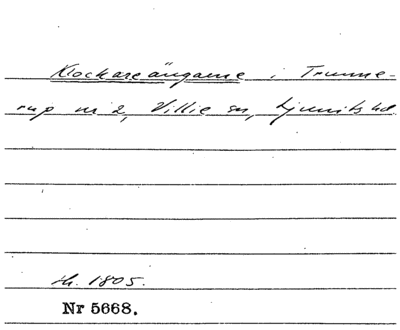 Klockareängarne i Trunne-
rup nr 2, Villie sn, Ljunits hd
h. 1805.
Nr 5668.